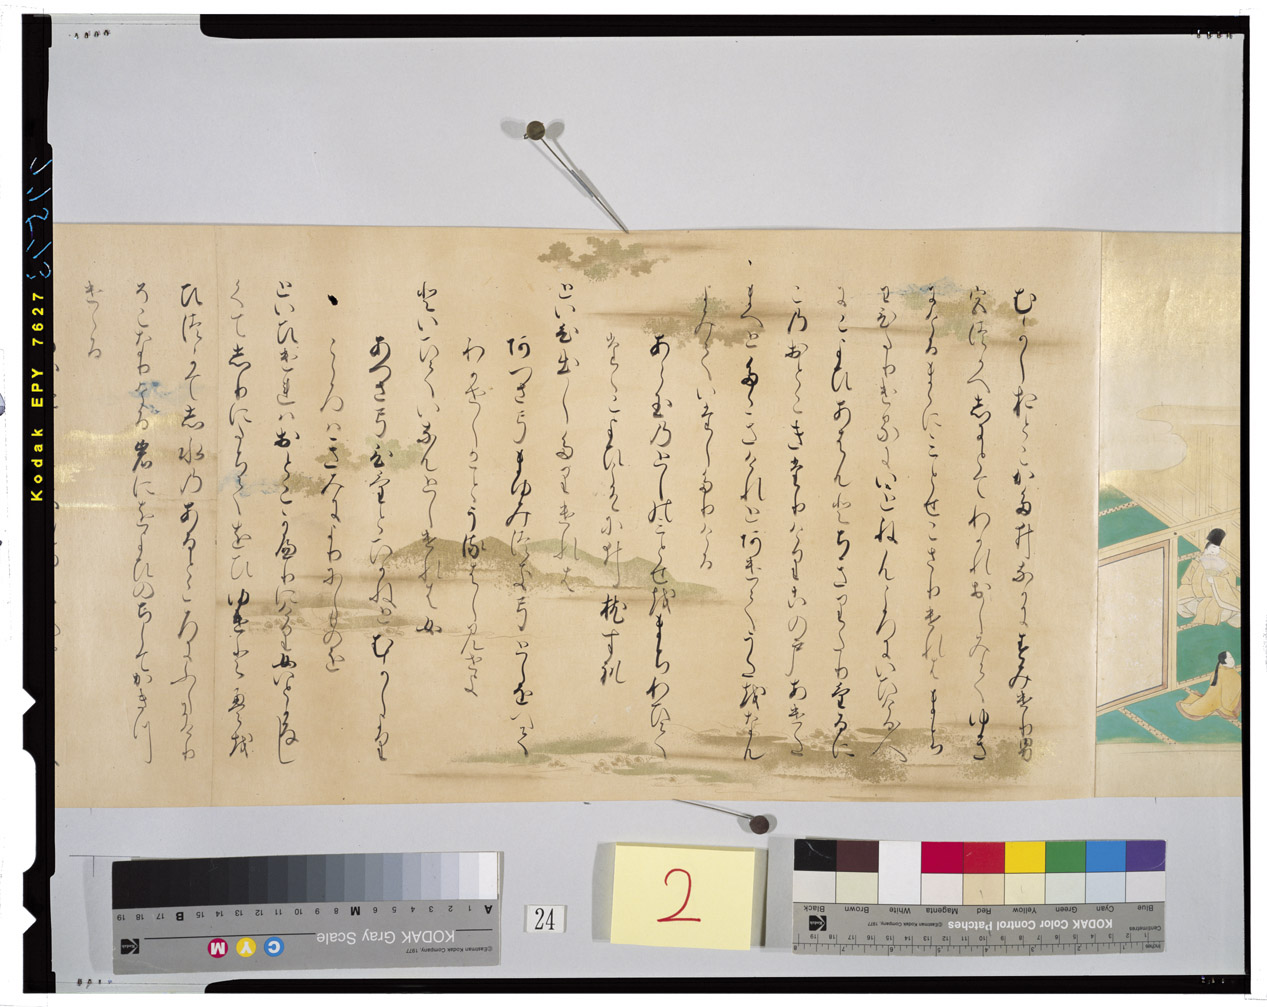 むかしおとこかた井なかにすみけり男
宮つかへしにとてわかれおしみてゆき
にけるまゝにみとせこさりけれはまち
わひたりけるにいとねんころにいひける人
にこよひあはんとちきりたりけるに
このおとこきたりけりこの戸あけた
まへとたゝきけれとあけてうたをなん
よみていたしたりける
あら玉のとしのみとせをまちわひて
たゝこよひこそ新枕すれ
といひ出したりけれは
あつさ弓まゆみつき弓としをへて
わかせしかことうるはしみせよ
といひていなんとしけれは女
あつさ弓ひけとひかねとむかしより
こゝろはきみによりにしものを
といひけれとおとこかへりにけり女いとかなし
くてしりにたちてをひゆけとえを
ひつかてし水のあるところにふしにけり
そこなりける岩にをよひのちしてかきつ
けける
Kodak EPY 7627
24
2
KODAK Gray Scale
©Eastman Kodak Company, 1977
C Y M
A 1 2 3 4 5 6 M 8 9 10 11 12 13 14 15 B 17 18 19
KODAK Color Control Patches
Blue Cyan Green Yellow Red Magenta White Brown Black